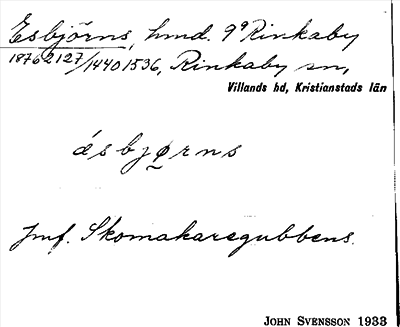 Esbjörns, hmd. 9ª Rinkaby
18762127/14401536, Rinkaby sn,
Villands hd, Kristianstads län
ásbjørns
Jmf. Skomakaregubbens.
JOHN SVENSSON 1933